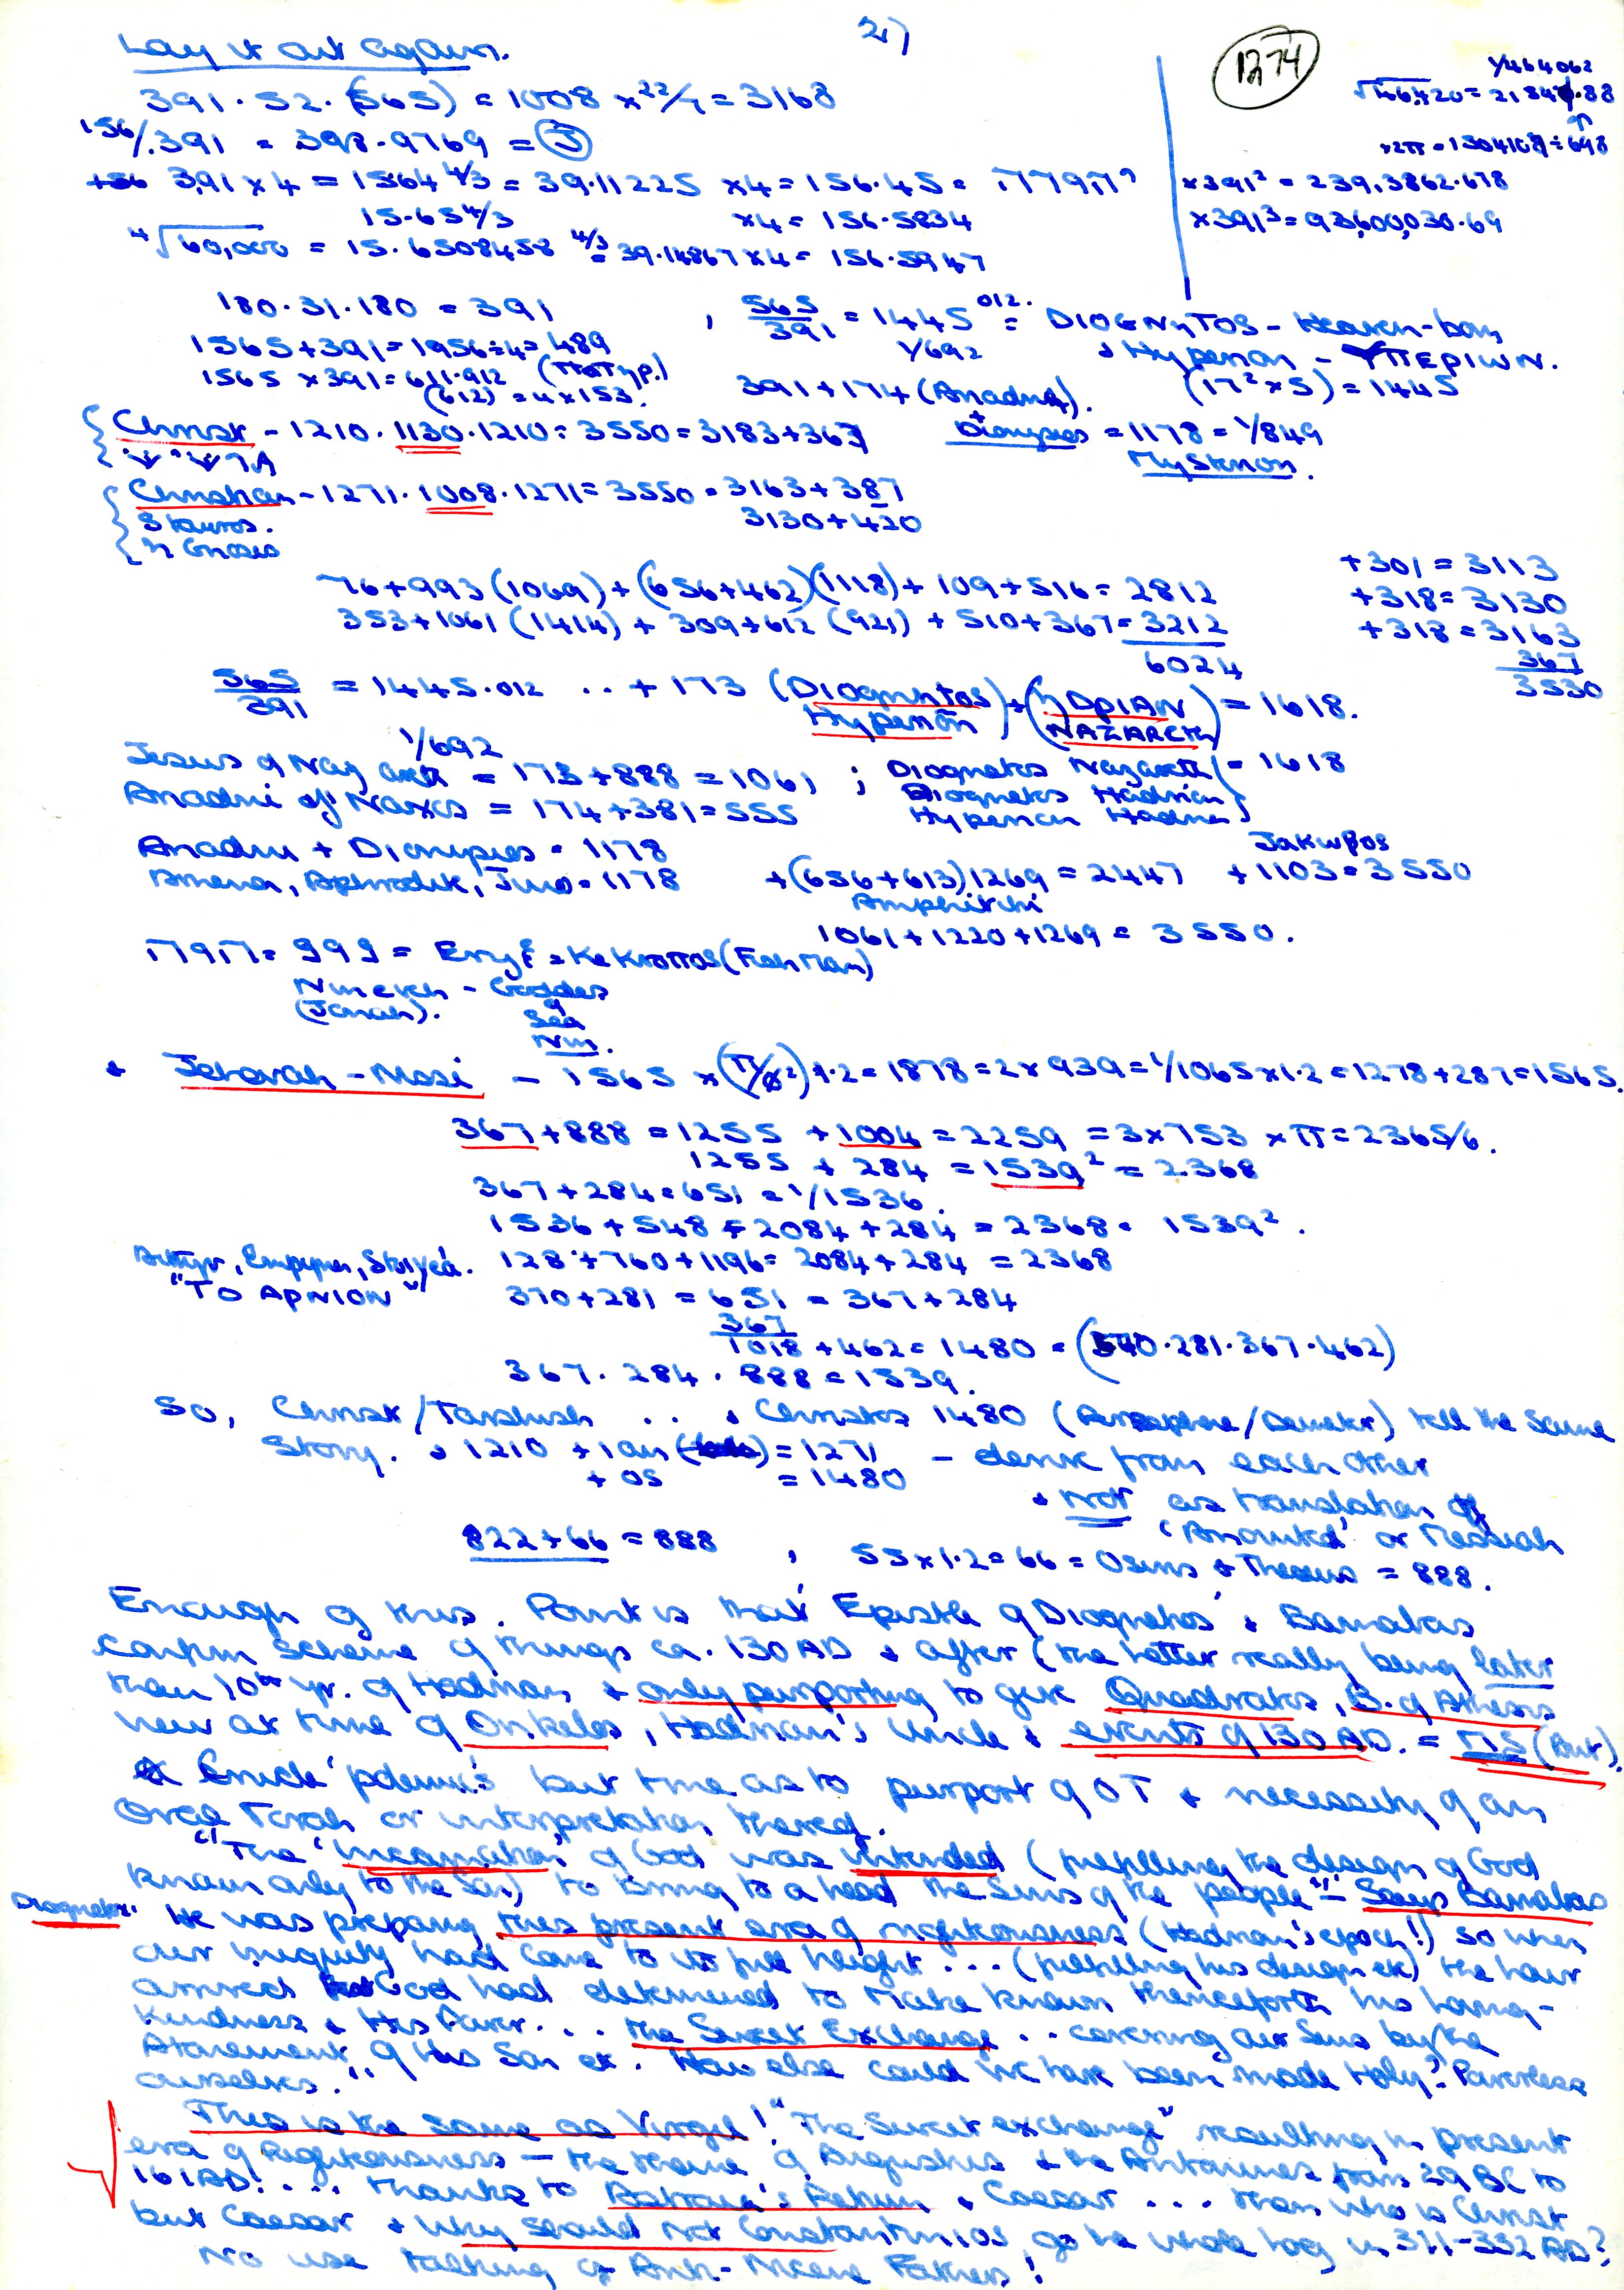 27
1274
Lay it out again.
391 · 52 · (565) = 1008 × 22/7 = 3168
156/.391 = 398.9769 = (3)
+56 3.91 × 4 = 1564 4/3 = 39.11225 × 4 = 156.45 =
15.65 4/3 × 4 = 156.5834
4√60,000 = 15.6508458 4/3 = 39.14867 × 4 = 156.5947
1/464062
√46,420 = 2154.88
÷2π = 1504108 ÷ 698
× 391² = 239,3862.678
× 391³ = 93,600,030.69
180 · 31 · 180 = 391 , 565/391 = 1445 012. = DIOGNηTOS - Heaven-born
1565 + 391 = 1956 ÷ 4 = 489 1/692 + Hyperion - ΥΠΕΡΙWN.
1565 × 391 = 611.912 (ΠαΤηρ.) (17² × 5) = 1445
(612) = 4 × 153. 391 + 174 (Ariadne).
Christ - 1210 · 1130 · 1210 = 3550 = 3183 + 367 + Dionysies = 1178 = 1/849
Mysterion.
Christian - 1271 · 1008 · 1271 = 3550 = 3163 + 387
Stauros. 3130 + 420
η Gnosis
76 + 993 (1069) + (656 + 462) (1118) + 109 + 516 = 2812 +301 = 3113
353 + 1061 (1414) + 309 + 612 (921) + 510 + 367 = 3212 +318 = 3130
6024 +318 = 3163
367
3530
565/391 = 1445.012 .. + 173 (Diognetos) + (ηDριAN) = 1618.
Hyperion NAZARETH
1/692
Jesus of Nazareth = 173 + 888 = 1061 ; Diognetos Nazareth = 1618
Ariadni of Naxos = 174 + 381 = 555 Diognetos Hadrian
Hyperion Hadrian
Ariadni + Dionysies = 1178 Jakwβos
Athena, Aphrodite, Juno = 1178 + (656 + 613) 1269 = 2447 + 1103 = 3550
Amphitriti
1061 + 1220 + 1269 = 3550.
= 999 = = KeKroπos (Fish Man)
Nineveh - Goddes
(Jonah). of
Sea
Nin.
+ Jehovah - Nissi - 1565 × (π/φ²) 1.2 = 1878 = 2 × 939 = 1/1065 × 1.2 = 1278 + 287 = 1565.
367 + 888 = 1255 + 1004 = 2259 = 3 × 753 × π = 2365/6.
1255 + 284 = 1539² = 2.368
367 + 284 = 651 = 1/1536.
1536 + 548 = 2084 + 284 = 2368 = 1539².
128 + 760 + 1196 = 2084 + 284 = 2368
"TO APNION" 370 + 281 = 651 = 367 + 284
367
1018 + 462 = 1480 = (370 · 281 · 367 · 462)
367 · 284 · 888 = 1539.
So, Christ/Tarshish .. + Christos 1480 (Persephone/Demeter) tell the same
story. + 1210 + ian = 1271 - derive from each other
+ os = 1480 + Not as translation of
'Anointed' or Messiah
822 + 66 = 888 , 55 × 1.2 = 66 = Osiris + Theseus = 888.
Enough of this. Point is that 'Epistle of Diognetos' + Barnabas
confirm scheme of things ca. 130 AD + after (the latter really being later
than 10th yr. of Hadrian + only purporting to give Quadratus, B. of Athens
view at time of Onkelos, Hadrian's Uncle + events of 130 AD. = MS (But).
Crude 'polemics' but true as to purport of OT + necessity of an
Oral Torah or interpretation thereof.
"The 'Incarnation' of God was intended (fulfilling the design of God
known only to the Son) to bring to a head the sins of the people" - Says Barnabas
Diognetos. He was preparing this present era of righteousness (Hadrian's epoch!) so when
our iniquity had come to its full height ... (fulfilling his design etc) the hour
arrived God had determined to make known thenceforth his loving-
kindness + His Power ... the Sweet Exchange .. covering our sins by the
Atonement of His Son etc. How else could we have been made Holy? Powerless
ourselves."
This is the same as Virgil! "The Sweet exchange" resulting in present
era of Righteousness - the theme of Augustus + the Antonines from 29 BC to
161 AD! ... Thanks to Astraea's Return + Caesar ... then who is Christ
but Caesar + why should not Constantinios go the whole hog in 311-332 AD?
No use talking of Ante-Nicene Fathers!